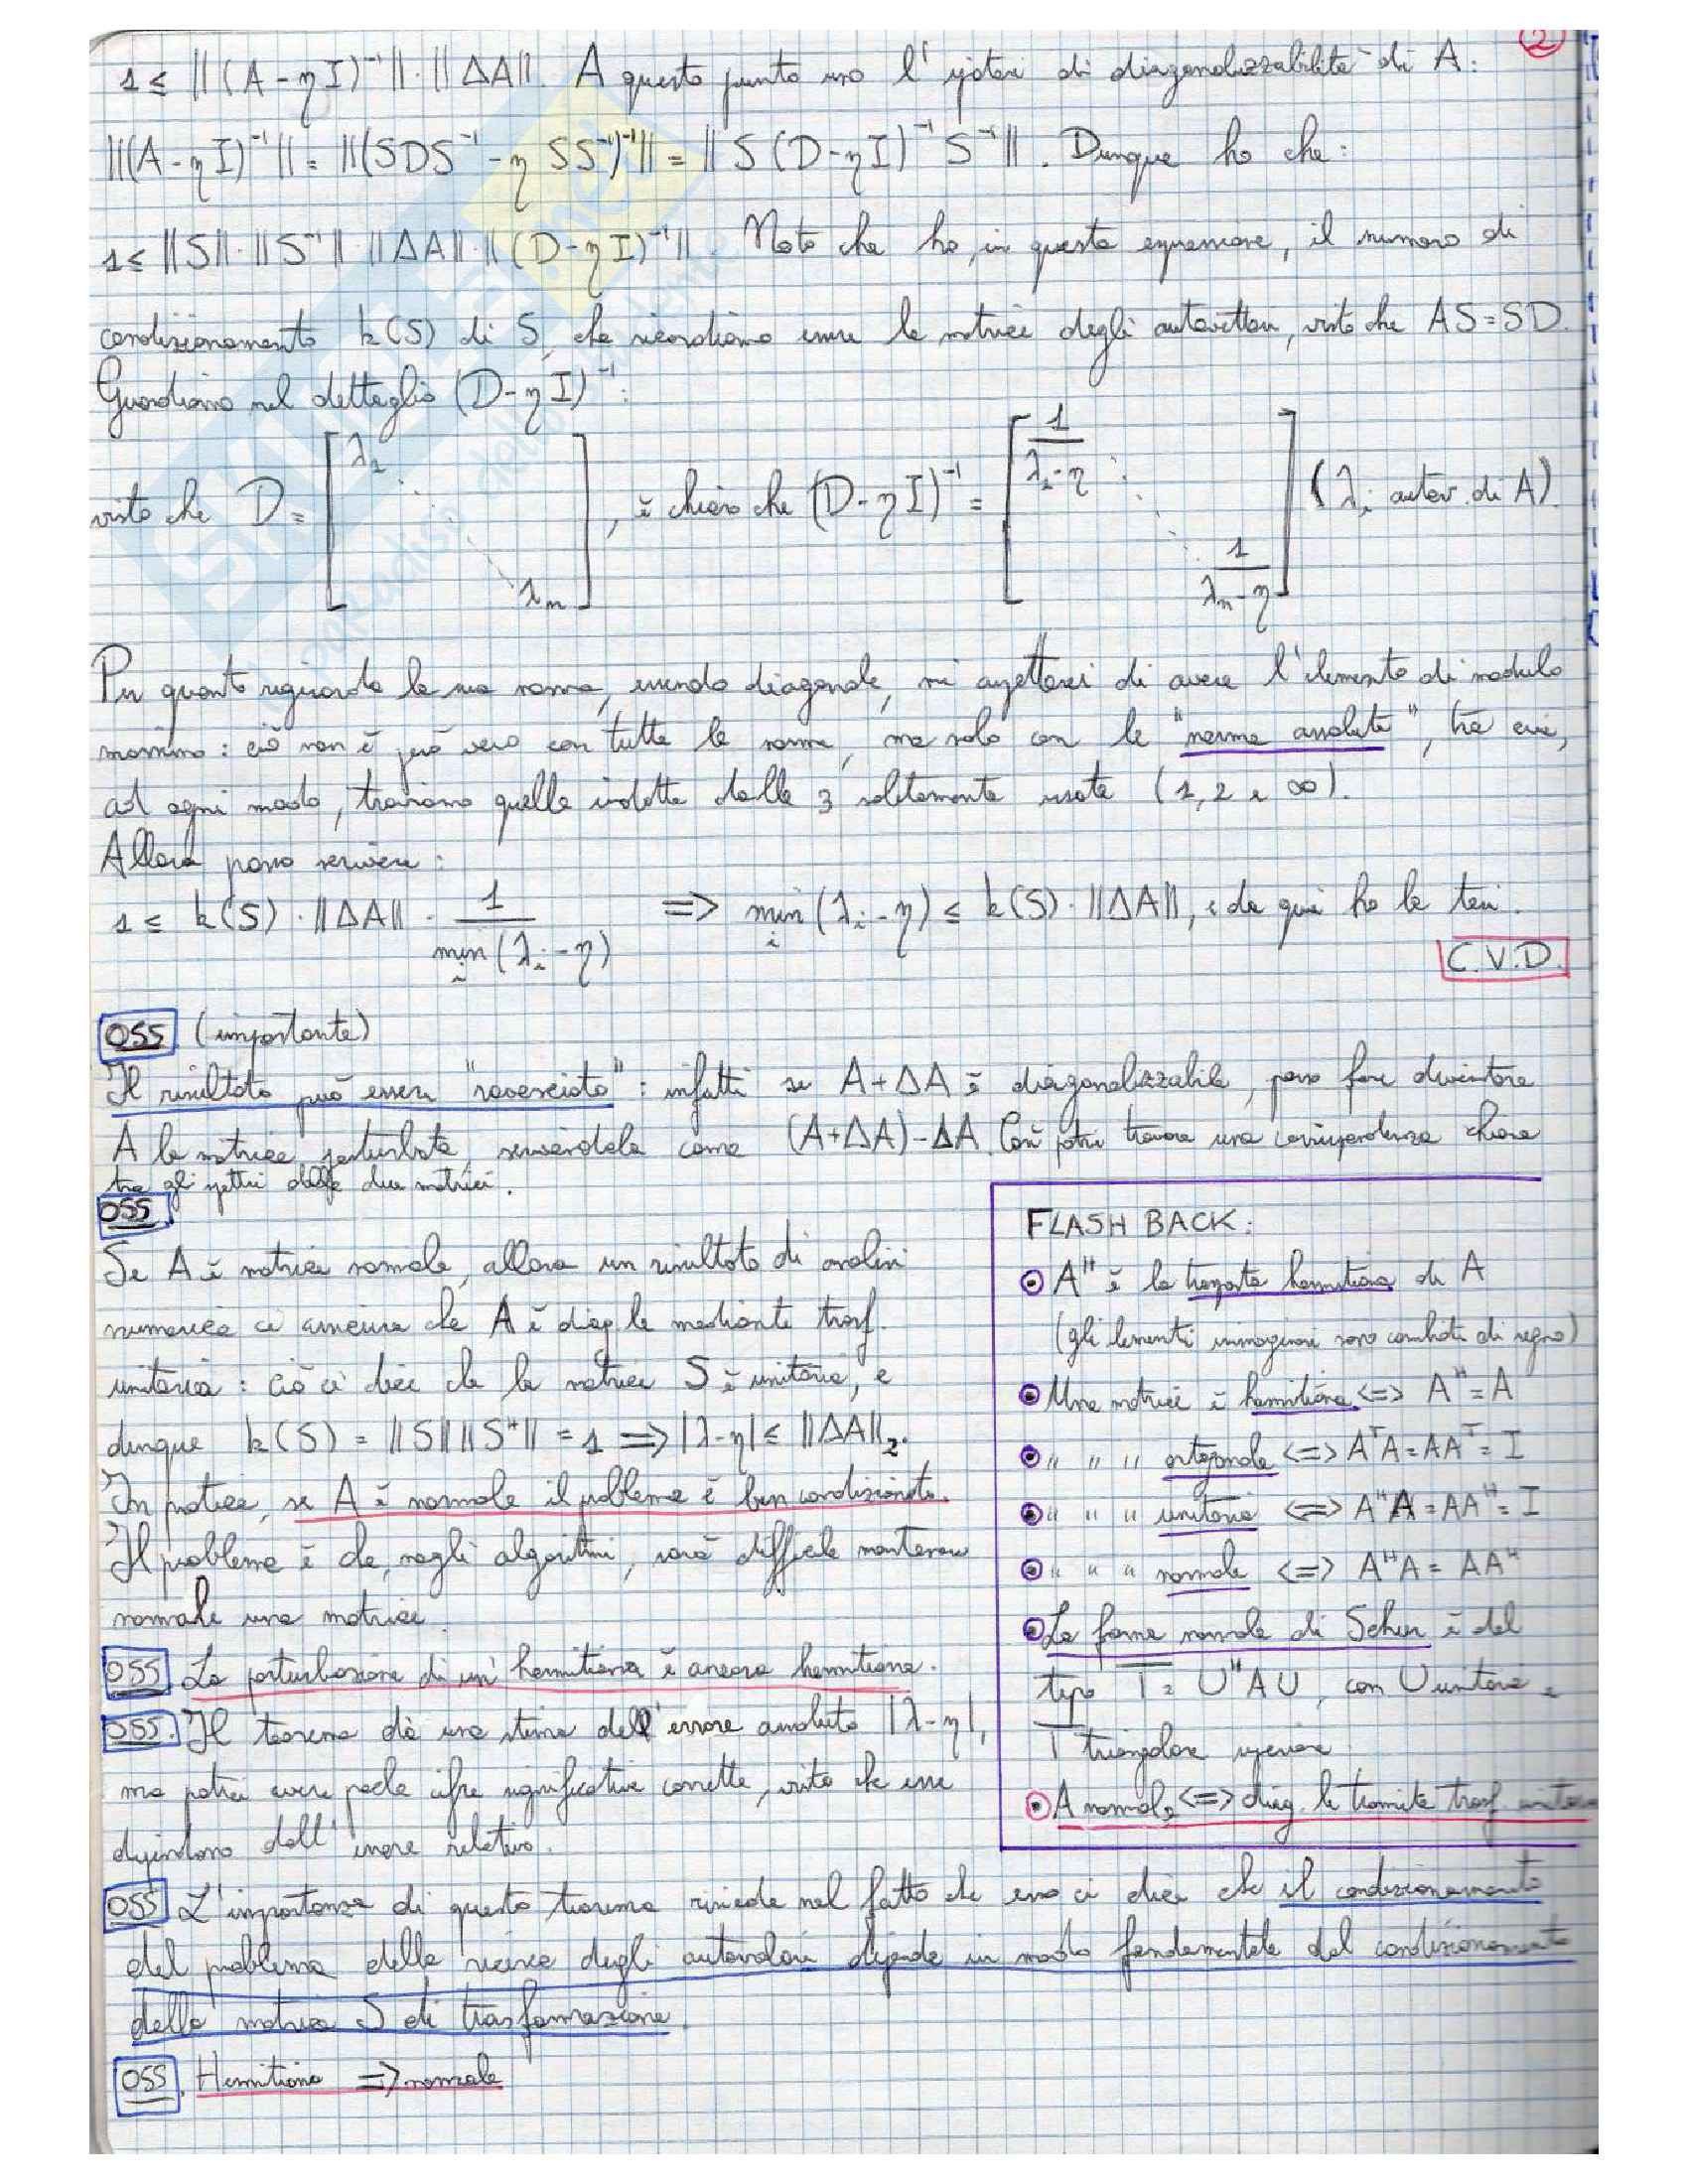 2
1 ≤ ||(A-ηI)⁻¹||·||ΔA||. A questo punto uso l'ipotesi di diagonalizzabilità di A:
||(A-ηI)⁻¹|| = ||(SDS⁻¹-η SS⁻¹)⁻¹|| = ||S(D-ηI)⁻¹S⁻¹||. Dunque ho che:
1≤ ||S||·||S⁻¹||·||ΔA||·||(D-ηI)⁻¹||. Noto che ho, in questa espressione, il numero di
condizionamento k(S) di S, che ricordiamo essere la matrice degli autovettori, visto che AS=SD.
Guardiamo nel dettaglio (D-ηI)⁻¹:
visto che D= [λ₁ ⋱ λₙ], è chiaro che (D-ηI)⁻¹ = [1/(λ₁-η) ⋱ 1/(λₙ-η)] (λᵢ autov. di A).
Per quanto riguarda la sua norma, essendo diagonale, mi aspetterei di avere l'elemento di modulo
massimo: ciò non è però vero con tutte le norme, ma solo con le "norme assolute", tra cui,
ad ogni modo, troviamo quelle indotte dalle 3 solitamente usate (1,2 e ∞).
Allora posso scrivere:
1≤ k(S)·||ΔA||·1/minᵢ(λᵢ-η) => minᵢ(λᵢ-η) ≤ k(S)·||ΔA||, e da qui ho la tesi.
C.V.D.
OSS (importante)
Il risultato può essere "rovesciato": infatti se A+ΔA è diagonalizzabile, posso fare diventare
A la matrice perturbata, scrivendola come (A+ΔA)-ΔA. Così potrei trovare una corrispondenza chiara
tra gli spettri delle due matrici.
OSS
Se A è matrice normale, allora un risultato di analisi
numerica ci assicura che A è diag.le mediante trasf.
unitaria: ciò ci dice che la matrice S è unitaria, e
dunque k(S) = ||S|| ||S⁻¹|| = 1 => |λ-η| ≤ ||ΔA||₂.
In pratica, se A è normale il problema è ben condizionato.
Il problema è che, negli algoritmi, sarà difficile mantenere
normale una matrice.
OSS La perturbazione di un'hermitiana è ancora hermitiana.
OSS. Il teorema dà una stima dell'errore assoluto |λ-η|,
ma potrei avere poche cifre significative corrette, visto che esse
dipendono dall'errore relativo.
FLASH BACK:
• Aᴴ è la trasposta hermitiana di A
(gli elementi immaginari sono cambiati di segno)
• Una matrice è hermitiana <=> Aᴴ=A
• " " " ortogonale <=> AᵀA=AAᵀ=I
• " " " unitaria <=> AᴴA=AAᴴ=I
• " " " normale <=> AᴴA= AAᴴ
• La forma normale di Schur è del
tipo T= UᴴAU, con U unitaria e
T triangolare superiore
• A normale <=> diag.le tramite trasf. unitaria
OSS L'importanza di questo teorema risiede nel fatto che esso ci dice che il condizionamento
del problema della ricerca degli autovalori dipende in modo fondamentale dal condizionamento
della matrice S di trasformazione.
OSS. Hermitiana => normale